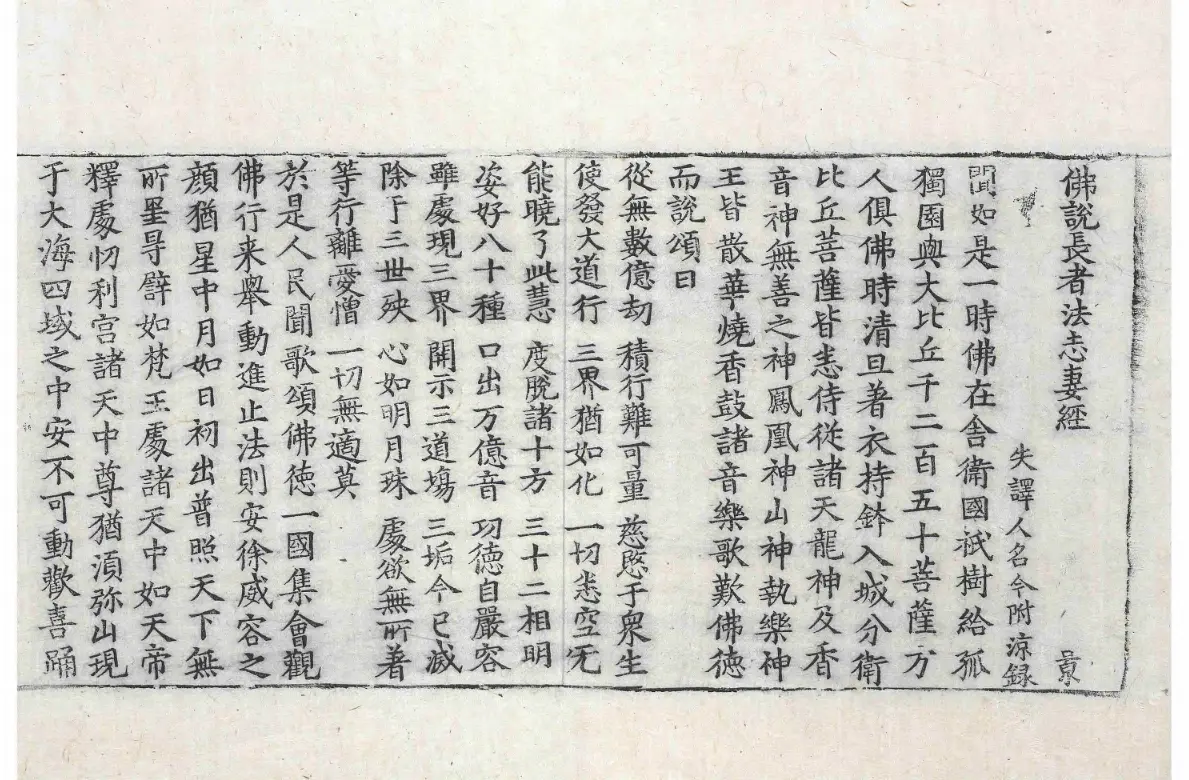 佛說長者法志妻經 景
失譯人名今附涼録
聞如是一時佛在舍衛國祇樹給孤
獨園與大比丘千二百五十菩薩万
人俱佛時清旦著衣持鉢入城分衛
比丘菩薩皆悉侍從諸天龍神及香
音神無善之神鳳凰神山神執樂神
王皆散華燒香鼓諸音樂歌歎佛德
而說頌曰
從無數億劫 積行難可量 慈愍于衆生
使發大道行 三界猶如化 一切悉空无
能曉了此慧 度脫諸十方 三十二相明
姿好八十種 口出万億音 功德自嚴容
雖處現三界 開示三道場 三垢今已滅
除于三世殃 心如明月珠 處欲無所著
等行離愛憎 一切無適莫
於是人民聞歌頌佛德一國集會觀
佛行来舉動進止法則安徐威容之
顏猶星中月如日初出普照天下無
所罣㝵譬如梵王處諸天中如天帝
釋處忉利宫諸天中尊猶湏弥山現
于大海四域之中安不可動歡喜踊